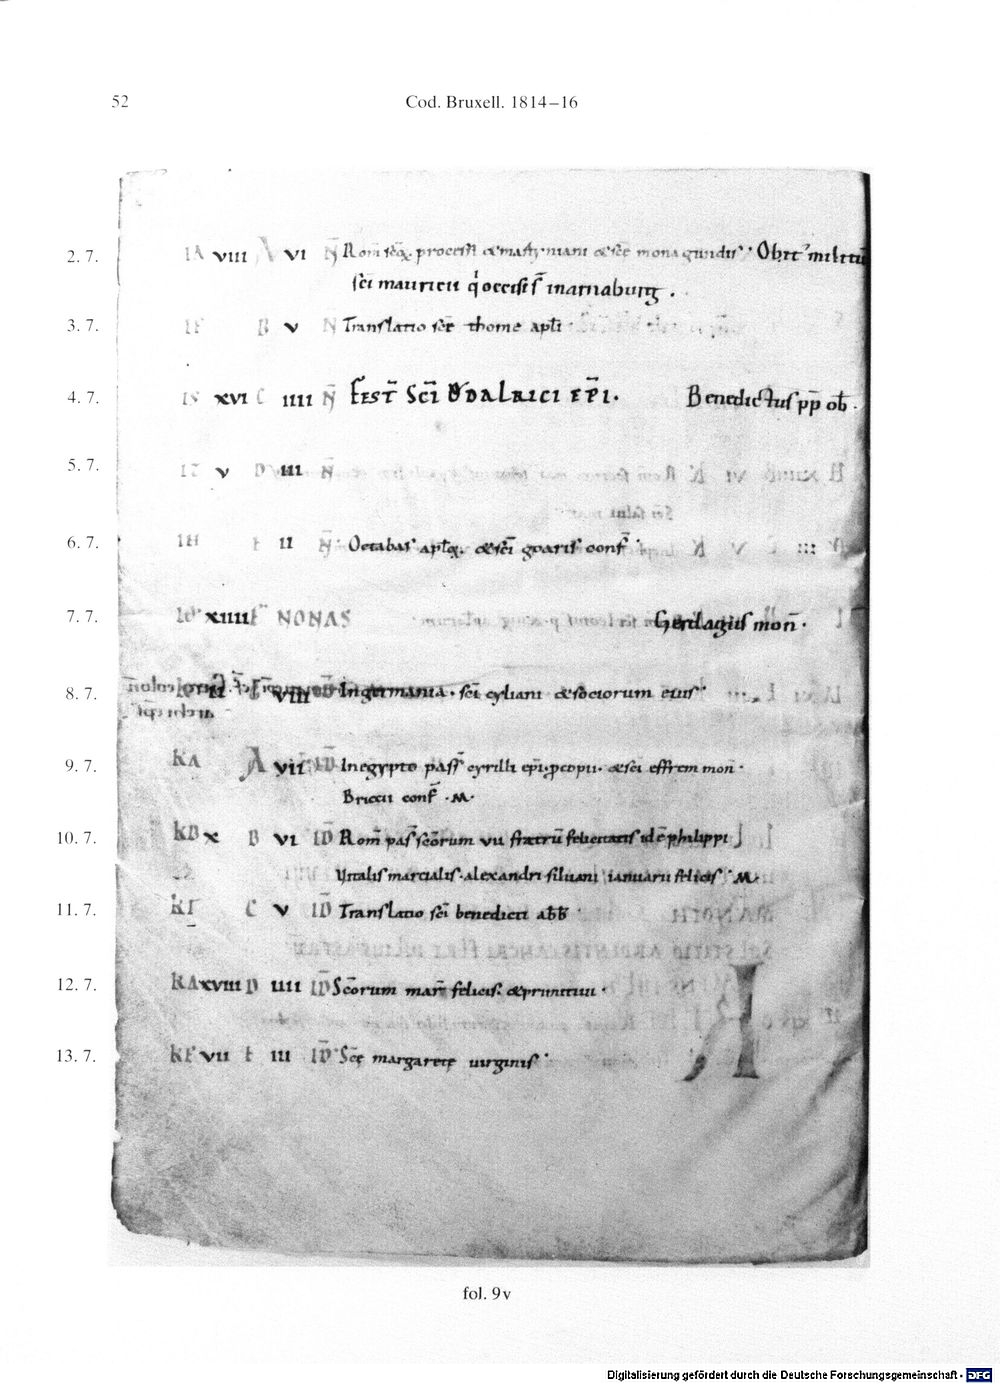 52
Cod. Bruxell. 1814–16
2. 7. VIII A VI N̄ Rom̄ proceſſi & martyniani & sc̄e monagundis. Obit' militū
sc̄i mauricii q̇ occisi s̄ in arnaburg.
3. 7. B V N Translatio sc̄e thome apl̄i
4. 7. XVI C IIII N̄ FEST̄ SC̄I ƲODALRICI EP̄I. Benedictus pp̄ ob̄.
5. 7. V D III N̄
6. 7. II N̄ Octabas apl̄oꝝ. & sc̄i goaris conf̄
7. 7. XIIII F NONAS Gerdagus mon̄.
8. 7. II VIII ID In germania. sc̄i cyliani & sociorum eius.
archiep̄s
9. 7. KA A VII ID In egypto pass̄ cyrilli ep̄i. & sc̄i effrem mon̄.
Briccii conf̄ .M.
10. 7. KB X B VI ID̄ Rom̄ pas̄ sc̄orum VII fratrū felicitatis id ē philippi
Vitalis marcialis. alexandri siluani ianuarii felicis. M.
11. 7. C V ID̄ Translatio sc̄i benedicti abb̄
12. 7. XVIII D IIII ID̄ Sc̄orum mar̄ felicis. & primitiui.
13. 7. KE VII E III ID̄ Sc̄e margarete uirginis.
fol. 9v
Digitalisierung gefördert durch die Deutsche Forschungsgemeinschaft - DFG